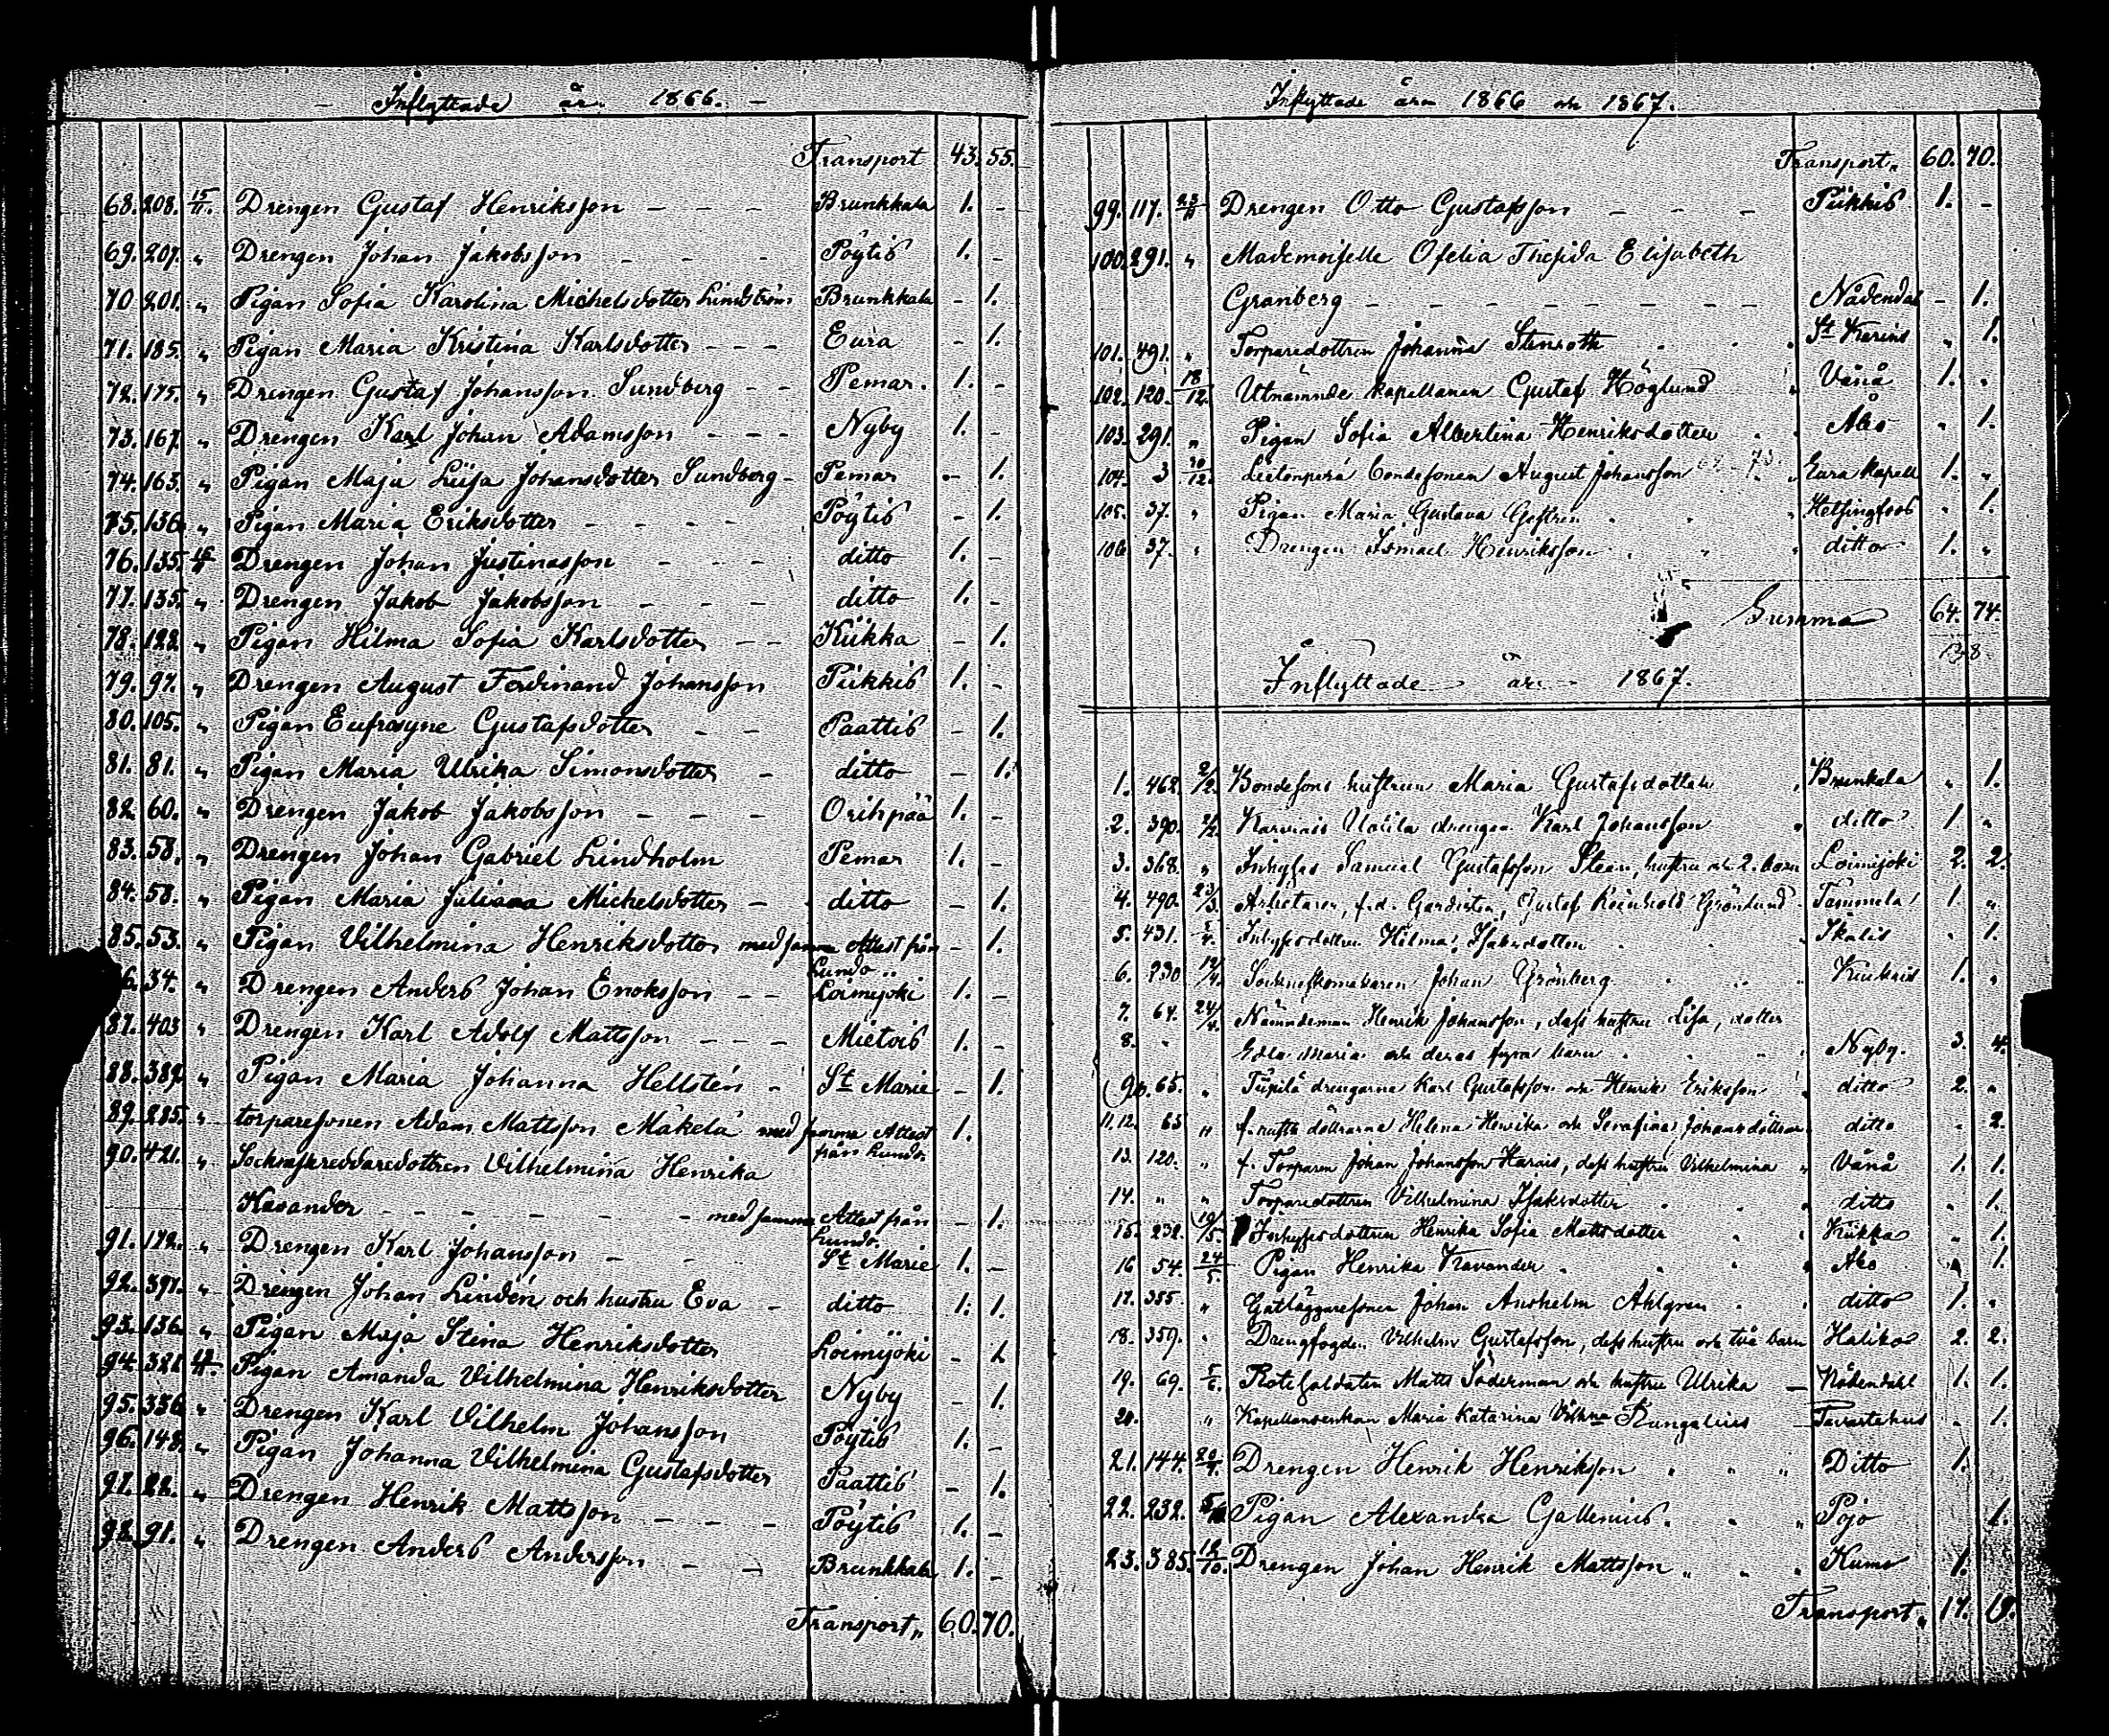 Inflyttade år 1866.
Transport 43. 55.
68. 208. 15/11. Drengen Gustaf Henriksson - - - Brunkkala 1. -
69. 207. " Drengen Johan Jakobsson - - - Pöytis 1. -
70. 201. " Pigan Sofia Karolina Michelsdotter Lindström Brunkkala - 1.
71. 185. " Pigan Maria Kristina Karlsdotter - - - Eura - 1.
72. 175. " Drengen Gustaf Johansson Sundberg - - Pemar. 1. -
73. 167. " Drengen Karl Johan Adamsson - - - Nyby 1. -
74. 163. " Pigan Maja Liisa Johansdotter Sundberg - Pemar - 1.
75. 136. " Pigan Maria Eriksdotter - - - - Pöytis - 1.
76. 135. Drengen Johan Justinasson - - - ditto 1. -
77. 135. " Drengen Jakob Jakobsson - - - ditto 1. -
78. 122. " Pigan Hilma Sofia Karlsdotter - - Kiikka - 1.
79. 97. " Drengen August Ferdinand Johansson Piikkis 1. -
80. 105. " Pigan Eufrosyne Gustafsdotter - - Paattis - 1.
81. 81. " Pigan Maria Ulrika Simonsdotter - ditto - 1.
82. 60. " Drengen Jakob Jakobsson - - - Orihpää 1. -
83. 58. " Drengen Johan Gabriel Lindholm Pemar 1. -
84. 58. " Pigan Maria Juliana Michelsdotter - ditto - 1.
85. 53. " Pigan Vilhelmina Henriksdotter med samma Attest från - 1.
Lundo
6. 34. " Drengen Anders Johan Enoksson - - Loimijoki 1. -
87. 403 " Drengen Karl Adolf Mattsson - - - Mietois 1. -
88. 389. " Pigan Maria Johanna Hellstén - St Marie - 1.
89. 285. " torparesonen Adam Mattsson Mäkelä med samma Attest 1.
från Lundo.
90. 421. " Socknskreddaredottren Vilhelmina Henrika
Kasander - - - - - med samma Attest från - 1.
Lundo.
91. 172. " Drengen Karl Johansson - - St Marie 1. -
92. 397. " Drengen Johan Lindén och hustru Eva - ditto 1. 1.
93. 136. " Pigan Maja Stina Henriksdotter Loimijoki - 1.
94. 321. Pigan Amanda Vilhelmina Henriksdotter Nyby - 1.
95. 336. " Drengen Karl Vilhelm Johansson Pöytis 1. -
96. 148. " Pigan Johanna Vilhelmina Gustafsdotter Paattis - 1.
97. 22. " Drengen Henrik Mattsson - - - Pöytis 1. -
98. 91. " Drengen Anders Andersson - - Brunkkala 1. -
Transport " 60. 70.
Inflyttade åren 1866 och 1867.
Transport " 60. 70.
99. 117. Drengen Otto Gustafsson - - - Piikkis 1. -
100. 291. " Mademoiselle Ofelia Elisabeth
Granberg - - - - - - - Nådendal - 1.
101. 491. " Torparedottren Johanna Stenroth St Karins " 1.
102. 120. 18/12. Utnämnde kapellanen Gustaf Höglund " Vånå 1. "
103. 291. " Pigan Sofia Albertina Henriksdotter Åbo " 1.
104. 3 20/12. Bondesonen August Johansson Eura kapell 1. "
105. 37. " Pigan Maria Gustava " Helsingfors " 1.
106. 37. " Drengen Ismael Henriksson " ditto 1. "
Summa 64. 74.
138
Inflyttade år 1867.
1. 462. 2/2. Bondesons hustrun Maria Gustafsdotter Brunkala " 1.
2. 390. drengen Karl Johansson " ditto 1. "
3. 368. " Inhyses Samuel Gustafsson Steen, hustru och 2. barn Loimijoki 2. 2.
4. 490. 23/3. Arbetaren, f.d. Gardisten, Gustaf Reinhold Grönlund Tammela 1. "
5. 431. Inhysesdottren Hilma Isaksdotter Ikalis " 1.
6. 230 12/4. Socknskomakaren Johan Grönberg 1. "
7. 64. 24/4. Nämndeman Henrik Johansson, dess hustru Lisa, dotter
8. " Maria och deras fyra barn " Nyby. 3. 4.
9.10. 65. " drengarna Karl Gustafsson och Henrik Eriksson " ditto 2. "
11.12. 65 " döttrarna Helena Henrika och Serafina Johansdöttrar ditto " 2.
13. 120. " f. Torparen Johan Johansson Harais, dess hustru Vilhelmina " Vånå 1. 1.
14. " " Torparedottren Vilhelmina Isaksdotter ditto " 1.
15. 232. 19/5. Inhysesdottren Henrika Sofia Mattsdotter Kiikka " 1.
16 54. 24/5. Pigan Henrika Åbo " 1.
17. 355. " Gatläggaresonen Johan Anshelm Ahlgren ditto 1. "
18. 359. " Drengfogden Vilhelm Gustafsson, dess hustru och två barn Haliko 2. 2.
19. 69. 5/6. Rotesoldaten Matts Söderman och hustru Ulrika - Nådendahl 1. 1.
20. " Kapellansenkan Maria Katarina Tavastehus " 1.
21. 144. Drengen Henrik Henriksson " " " Ditto 1.
22. 232. Pigan Alexandra Gallenius. " " Pojo 1.
23. 385. Drengen Johan Henrik Mattsson " " " Kumo 1.
Transport " 17. 19.